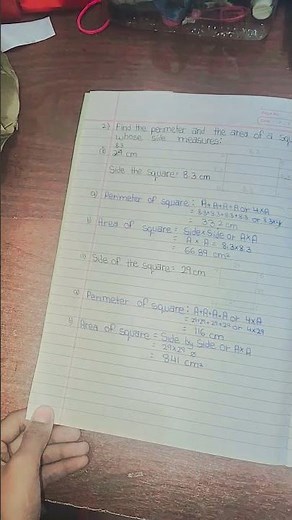 2) Find the perimeter and the area of a
whose side measures:
8.3
cm
Side the square = 8.3 cm
a) Perimeter of square: A+A+A+A or 4×A
= 8.3+8.3+8.3+8.3 or 8.3×4
= 33.2 cm
b) Area of square = Side×Side or A×A
= A × A = 8.3×8.3
= 66.89 cm²
Side of the square = 29 cm
a) Perimeter of square: A+A+A+A or 4×A
= 29+29+29+29 or 4×29
= 116 cm
b) Area of square = Side by Side or A×A
= 29×29
= 841 cm²